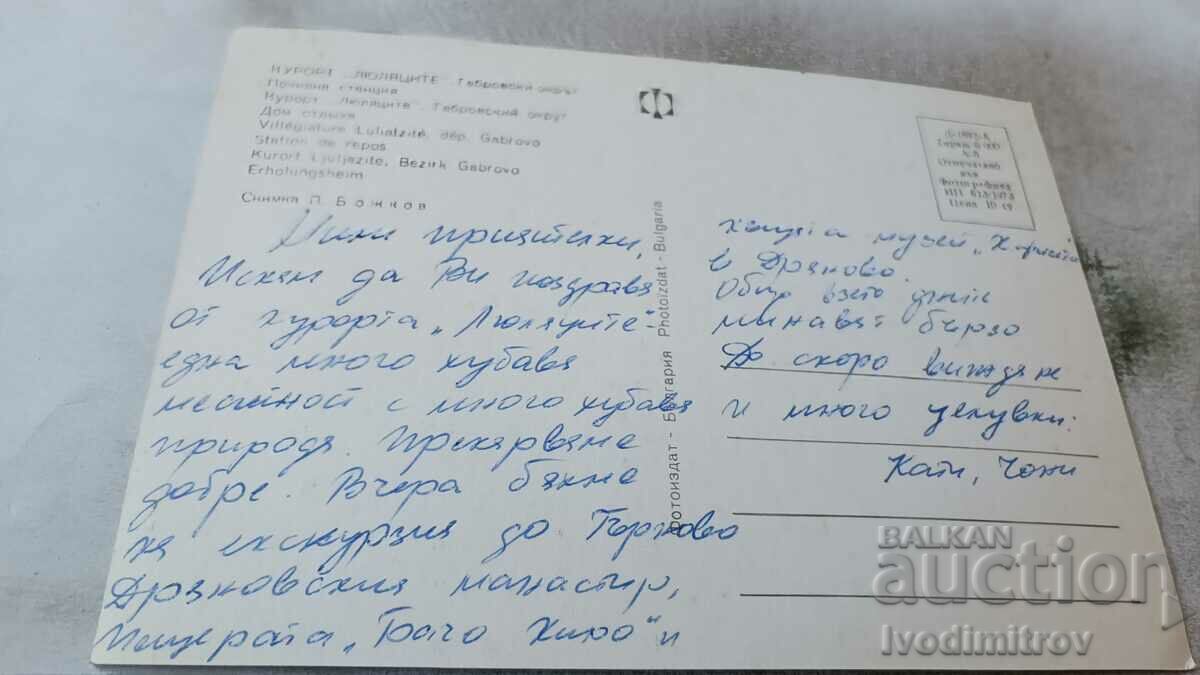 КУРОРТ „ЛЮЛЯЦИТЕ“, Габровски окръг
Почивна станция
Курорт „Люляците“, Габровский округ
Дом отдыха
Villégiature Luliatzité, dép. Gabrovo
Station de repos
Kurort Ljuljazite, Bezirk Gabrovo
Erholungsheim
Снимка П. Божков
Мили приятелки,
Искам да Ви поздравя
от курорта „Люляците“-
една много хубава
местност с много хубава
природа. Прекарваме
добре. Вчера бяхме
на екскурзия до Търново
Дряновския манастир,
пещерата „Бачо Киро“ и
Фотоиздат - България Photoizdat - Bulgaria
къщата музей
в Дряново.
Общо взето дните
минават бързо
До скоро виждане
и много целувки:
Кати, Чони
Отпечатано
във
Фотографика
Цена 10 ст
BALKAN
auction
Ivodimitrov